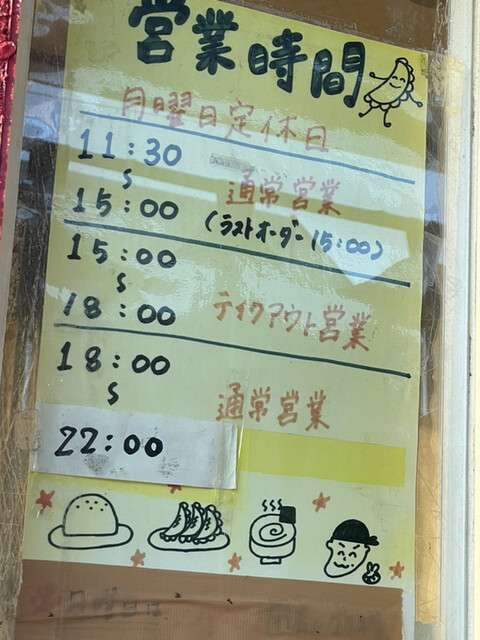 営業時間
月曜日定休日
11:30
s
15:00
通常営業
(ラストオーダー 15:00)
15:00
s
18:00
テイクアウト営業
18:00
s
22:00
通常営業